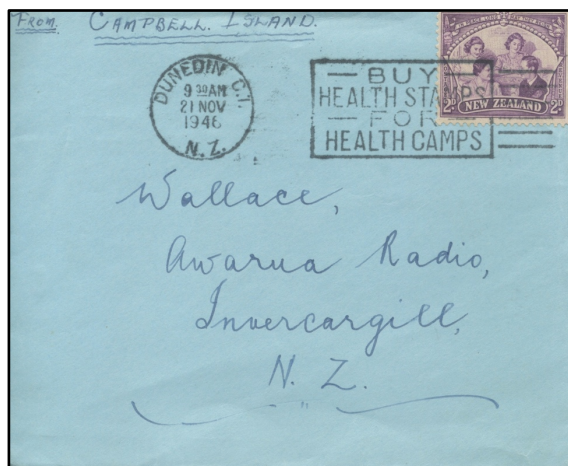 FROM CAMPBELL. ISLAND.
DUNEDIN C.1.
9 30AM
21 NOV
1946
N.Z.
— BUY —
HEALTH STAMPS
— FOR —
HEALTH CAMPS
2D NEW ZEALAND 2D
Wallace,
Awarua Radio,
Invercargill,
N. Z.